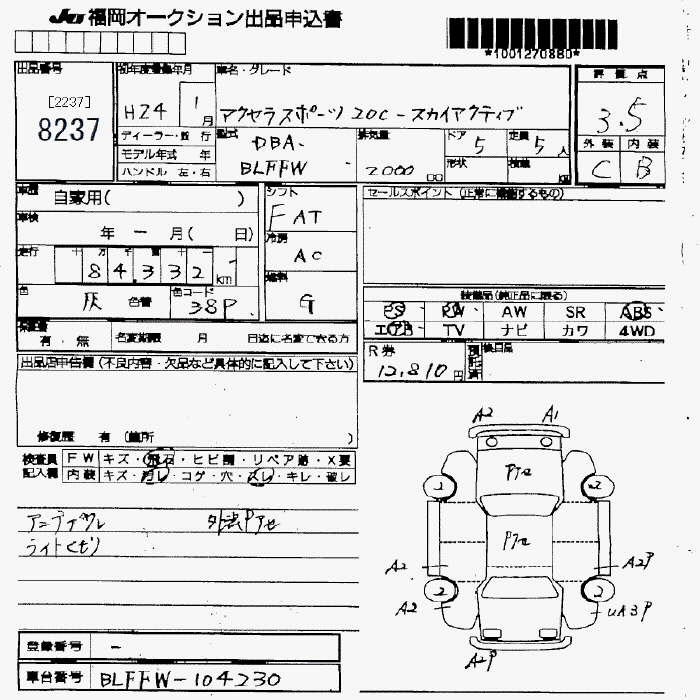 JU 福岡オークション出品申込書
*1001270880*
出品番号
[2237]
8237
初年度登録年月
H24 1月
車名・グレード
アクセラスポーツ 20C-スカイアクティブ
評価点
3.5
外装 内装
C B
ディーラー・並行
モデル年式 年
ハンドル 左・右
型式
DBA-
BLFFW
排気量
2000 cc
ドア 5
定員 5人
形状
積載
車歴
自家用( )
車検
年 ー 月( 日)
走行
十 万 千 百 十 一
84,332 km
色
灰 色替
色コード
38P
シフト
F AT
冷房
AC
燃料
G
セールスポイント(正常に機能するもの)
装備品(純正品に限る)
PS PW AW SR ABS
エアB TV ナビ カワ 4WD
保証書
有・無
名変期限 月 日迄に名変できる方
R券
12,810円
預託済
検目品
出品店申告欄(不良内容・欠品など具体的に記入して下さい)
修復歴 有(箇所 )
検査員
記入欄
FW キズ・飛石・ヒビ割・リペア跡・X要
内装 キズ・汚レ・コゲ・穴・スレ・キレ・破レ
外装Pアセ
ライトくもり
A2 A1
Pアセ
2 2
Pアセ
A2 A2P
2 2
A2 UA3P
A2P
登録番号 ー
車台番号 BLFFW-104230